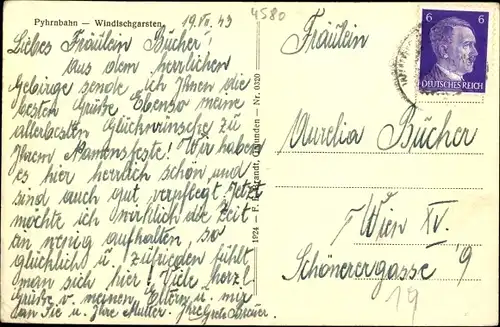 Pyhrnbahn — Windischgarsten.
19.VII.43
4580
Liebes Fräulein Bücher!
Aus dem herrlichen
Gebirge sende ich Ihnen die
besten Grüße Ebenso meine
allerbesten Glückwünsche zu
Ihrem Namensfeste! Wir haben
es hier herrlich schön und
sind auch gut verpflegt. Jetzt
möchte ich wirklich die Zeit
ein wenig aufhalten, so
glücklich u. zufrieden fühlt
man sich hier! Viele herzl.
Grüße v. meinen Eltern u. mir
an Sie u. Ihre Mutter. Ihre Grete
1924 — F. E. Brandt, Gmunden — Nr. 0320
6 6
DEUTSCHES REICH
Fräulein
Aurelia Bücher
Wien XV.
Schönerergasse 19
19